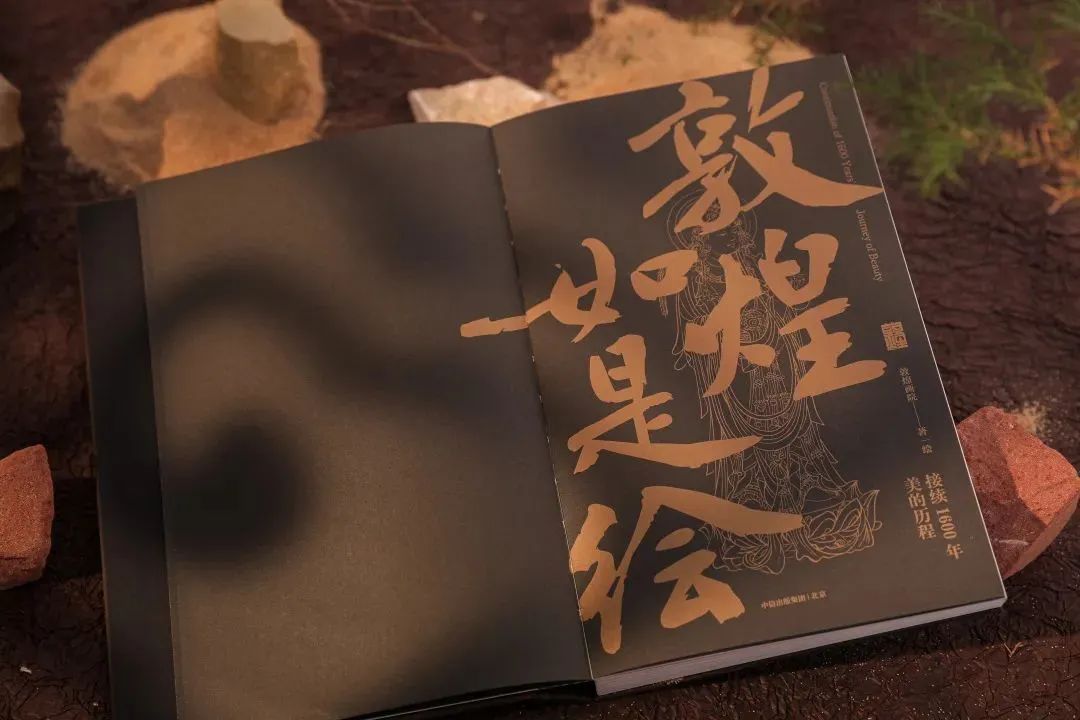 敦煌
如是
绘
Continuation of 1600 Years
Journey of Beauty
敦煌画院——著 绘
接续1600年
美的历程
中信出版集团 | 北京